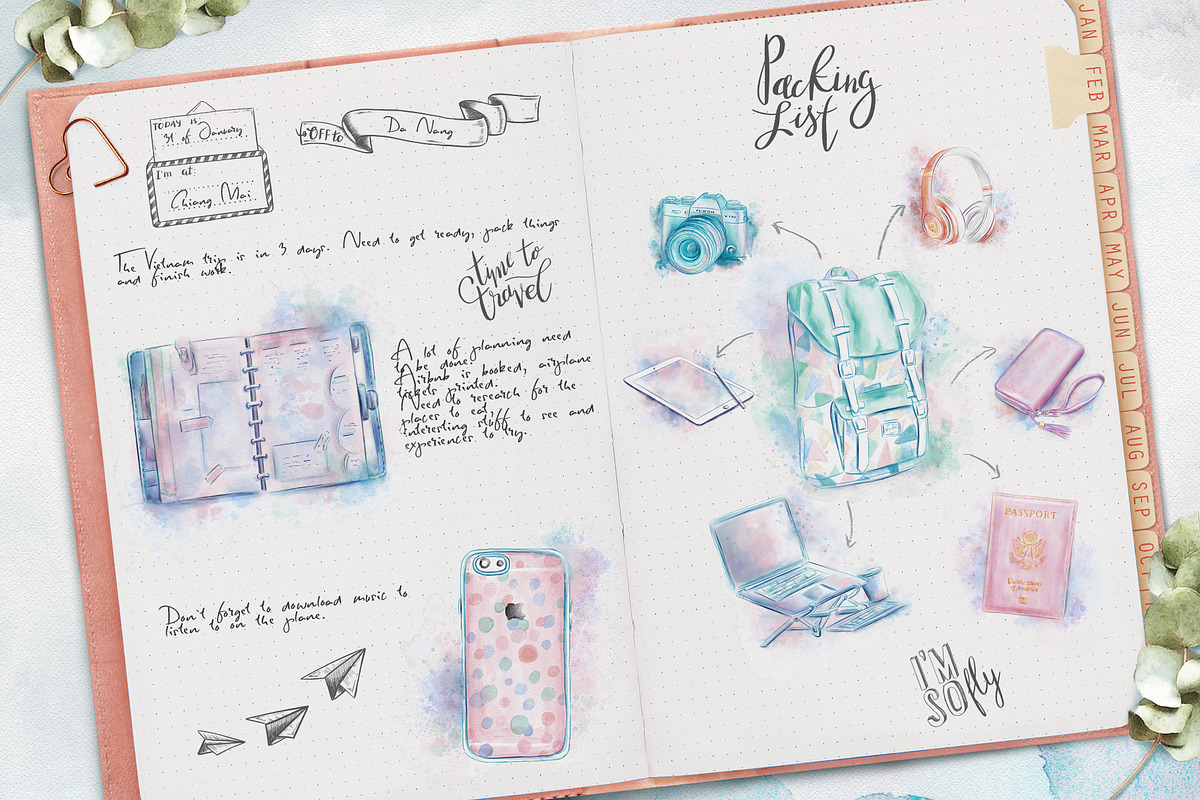 TODAY is:
31 of January
I'm at:
Chiang Mai
OFF to
Da Nang
The Vietnam trip is in 3 days. Need to get ready, pack things
and finish work.
time to
travel
A lot of planning need
to be done.
Airbnb is booked, airplane
tickets printed.
Need to research for the
places to eat,
interesting stuff to see and
experiences to try.
Don't forget to download music to
listen to on the plane.
Packing
List
PASSPORT
United States
of America
I'M
SO fly
JAN
FEB
MAR
APR
MAY
JUN
JUL
AUG
SEP
OCT